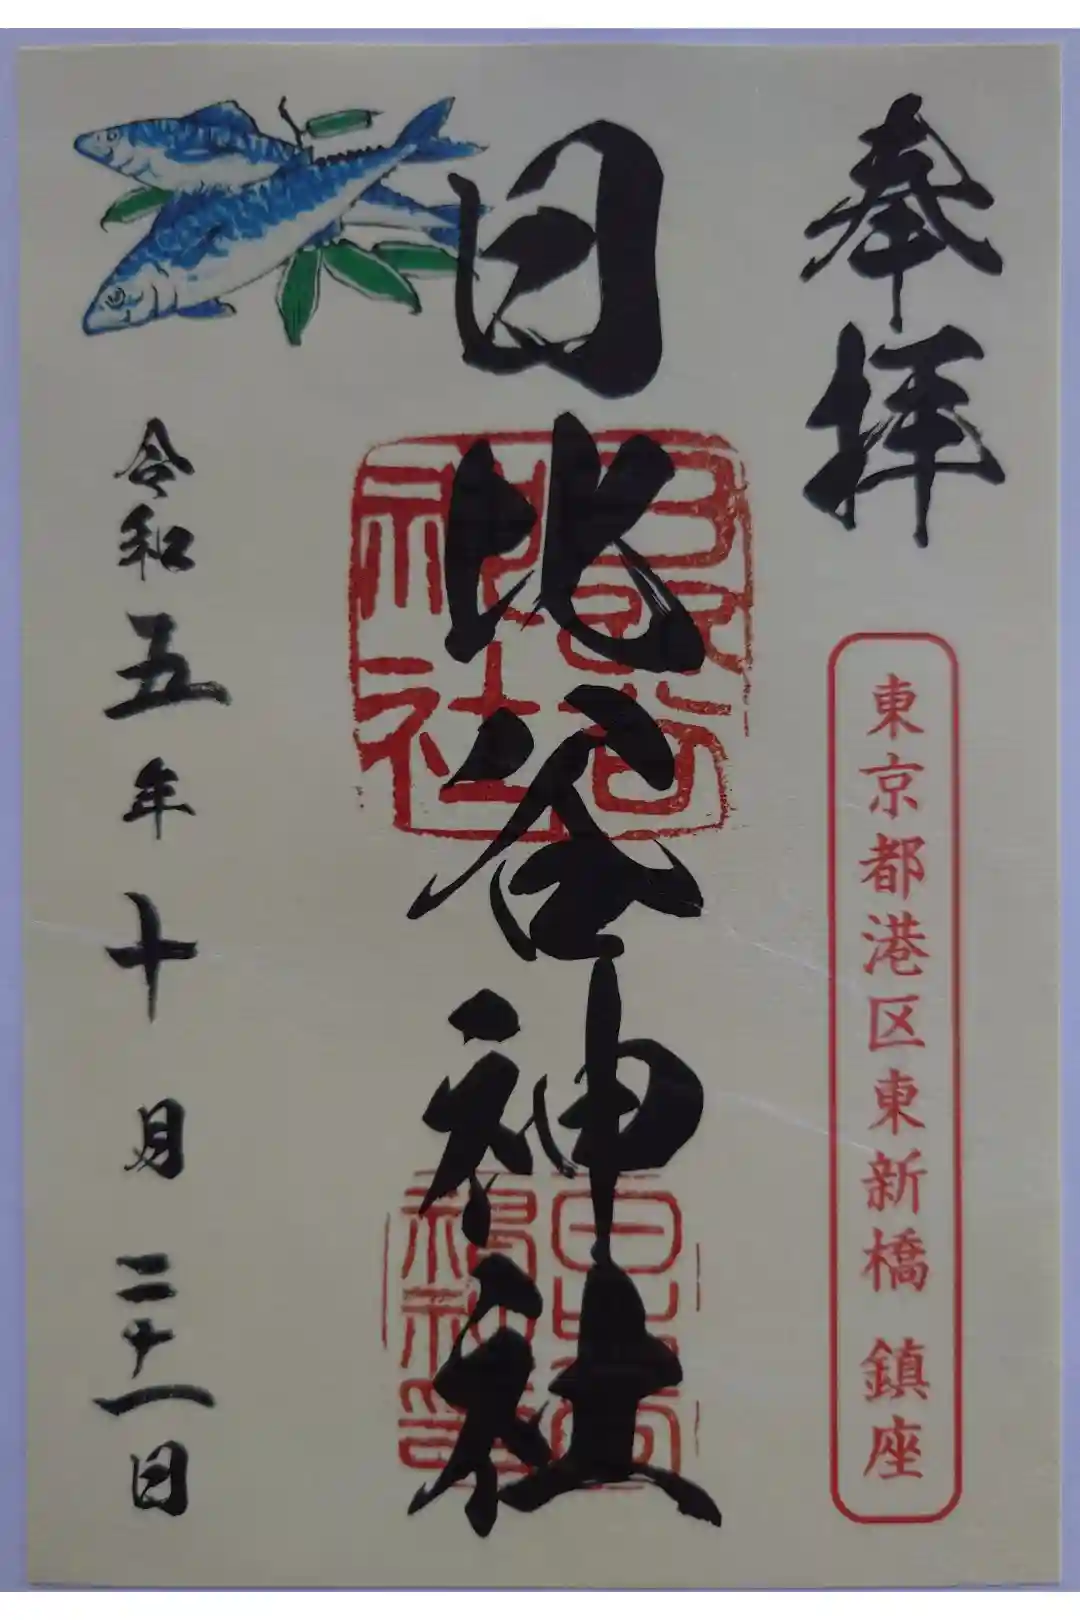 奉拝
東京都港区東新橋 鎮座
日比谷神社
日比谷神社
令和五年十月二十一日